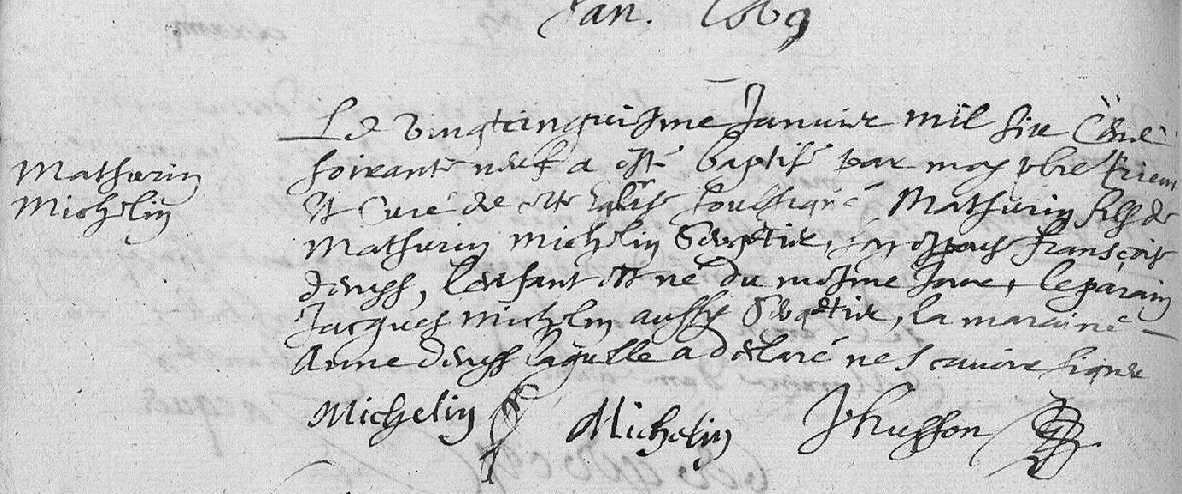 Jan. 1669
Mathurin
Michelin
Le vingtcinquiesme Janvier mil six Cent
soixante neuf a esté baptisé par moy pbre
et Curé de ceste Eglise soussigné Mathurin fils de
Mathurin Michelin et de Françoise
l'enfant est né du mesme Jour, le parain
Jacques Michelin aussy la maraine
Anne laquelle a declaré ne scavoir signer
Michelin Michelin Husson